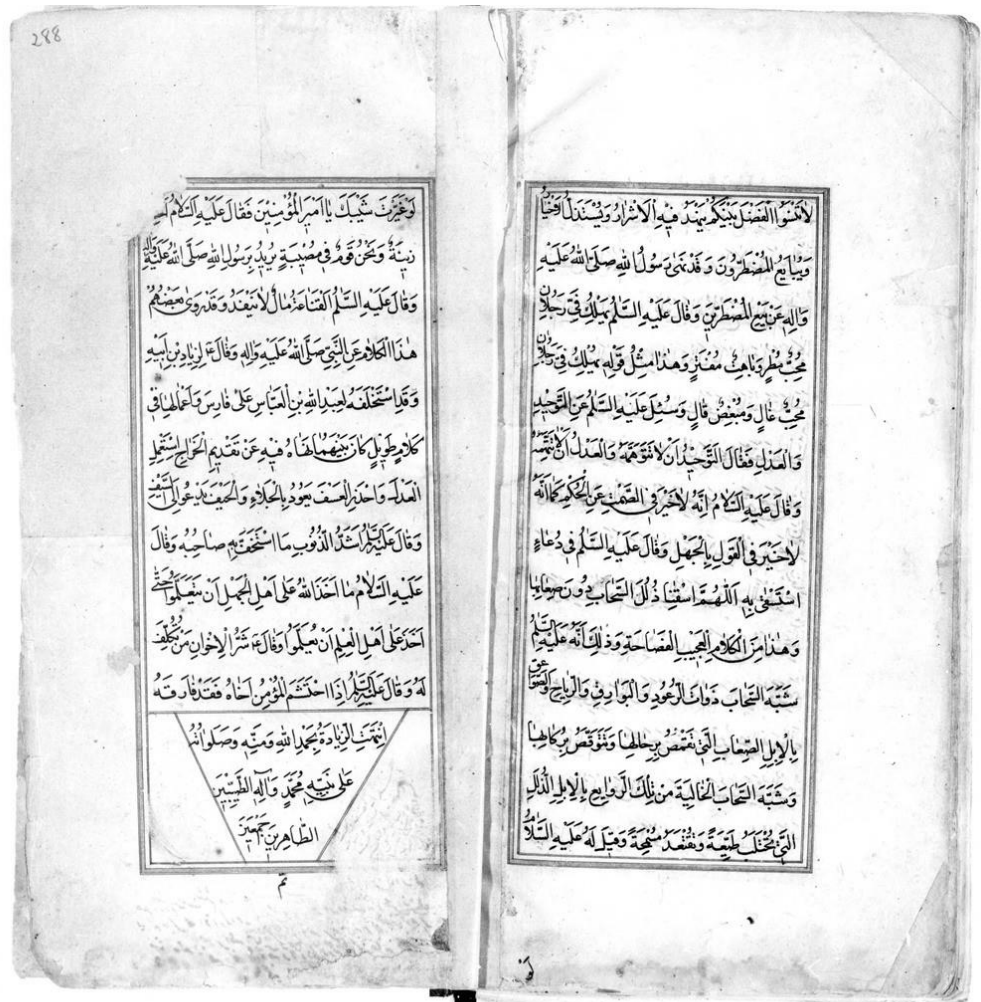 لا تنسوا الفضل بينكم ينهد فيه الاشرار ويستذل الاخيار
ويبايع المضطرون وقد نهى رسول الله صلى الله عليه
واله عن بيع المضطرين وقال عليه السلم يهلك في رجلان
محب مطر وباهت مفتر وهذا مثل قوله يهلك في رجلان
محب غال ومبغض قال وسئل عليه السلم عن التوحيد
والعدل فقال التوحيد ان لا تتوهمه والعدل ان لا تتهمه
وقال عليه السلام انه لا خير في الصمت عن الحكم كما انه
لا خير في القول بالجهل وقال عليه السلم في دعاء
استسقى به اللهم اسقنا ذلل السحاب دون صعابها
وهذا من الكلام العجيب الفصاحة وذلك انه عليه السلم
شبه السحاب ذوات الرعود والبوارق والرياح والصواعق
بالابل الصعاب التي تقمص برحالها وتتوقص بركابها
وشبه السحاب الخالية من تلك الروايع بالابل الذلل
التي تحتلب طيعة وتقتعد مسمحة وقيل له عليه السلام
لو
288
لو غيرت شيبك يا امير المؤمنين فقال عليه السلام
زينة ونحن قوم في مصيبة يريد برسول الله صلى الله عليه واله
وقال عليه السلم القناعة مال لا ينفد وقد روى بعضهم
هذا الكلام عن النبي صلى الله عليه واله وقال ع لزياد بن ابيه
وقد استخلفه لعبد الله بن العباس على فارس واعمالها في
كلام طويل كان بينهما نهاه فيه عن تقديم الخراج استعمل
العدل واحذر العسف يعود بالجلاء والحيف يدعو الى السيف
وقال عليه السلم اشد الذنوب ما استخف به صاحبه وقال
عليه السلام ما اخذ الله على اهل الجهل ان يتعلموا حتى
اخذ على اهل العلم ان يعلموا وقال ع شر الاخوان من تكلف
له وقال عليه السلم اذا احتشم المؤمن اخاه فقد فارقه
انتهت الزيادة بحمد الله ومنه وصلواته
على نبيه محمد واله الطيبين
الطاهرين
تم